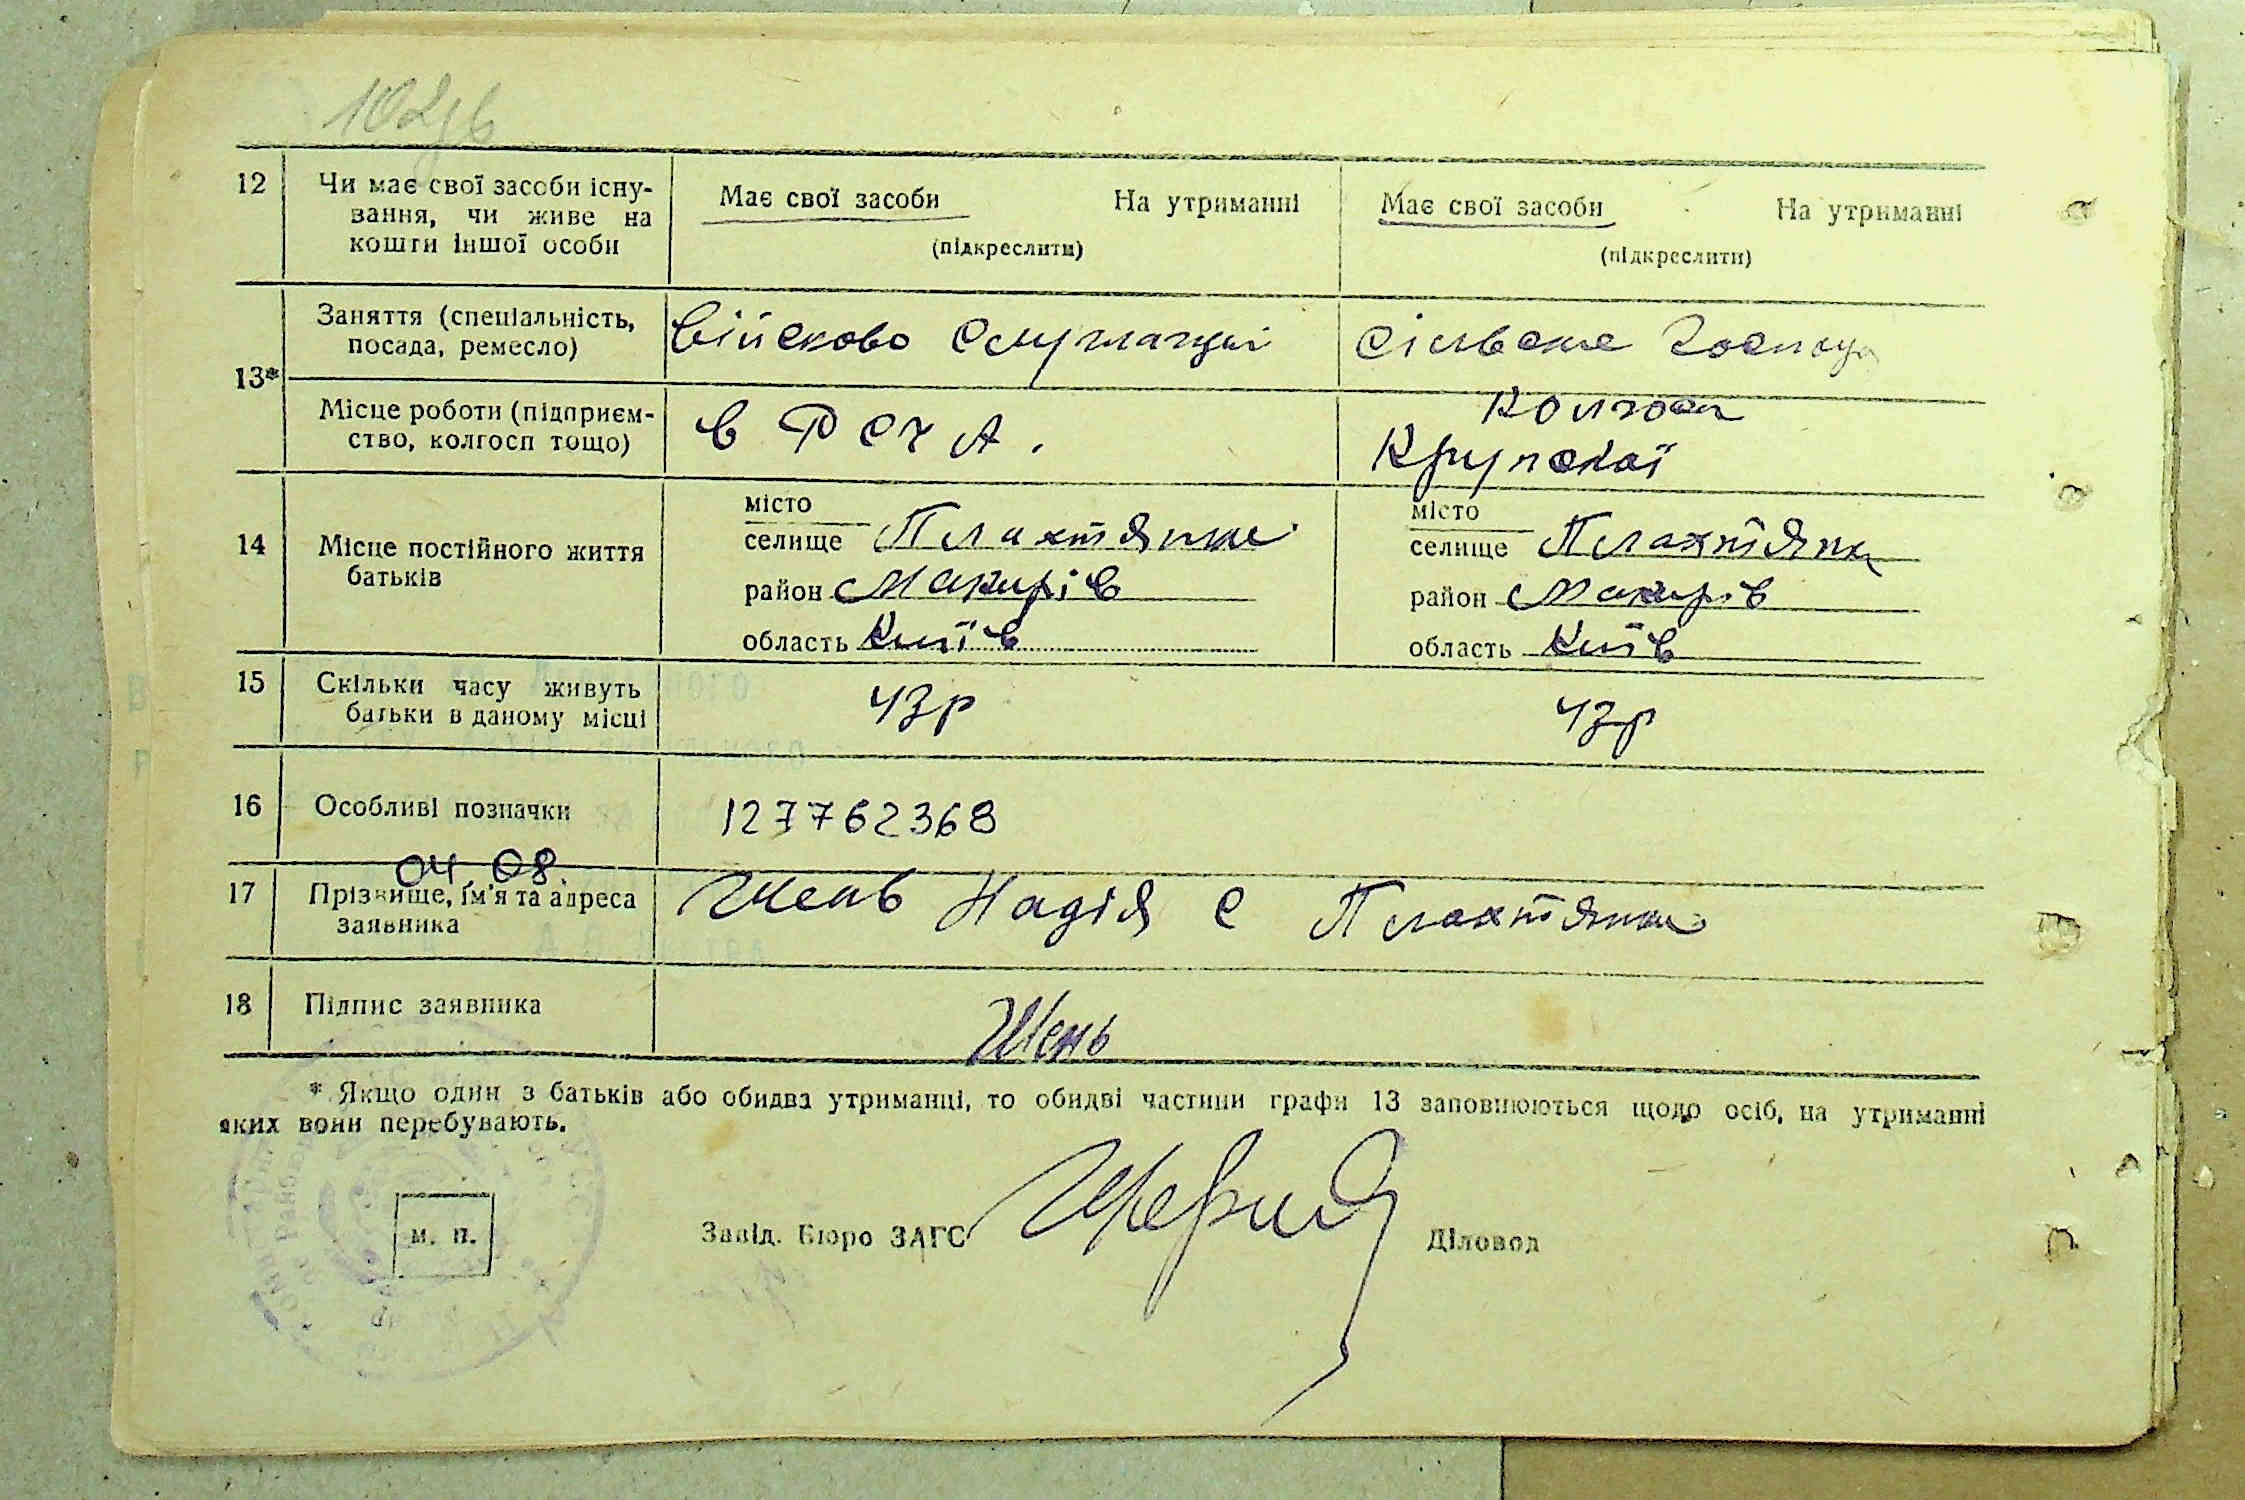 102зв
12 Чи має свої засоби існу- Має свої засоби На утриманні Має свої засоби На утриманні
вання, чи живе на
кошти іншої особи (підкреслити) (підкреслити)
13* Заняття (спеціальність, Військово служащий Сільське господ
посада, ремесло)
Місце роботи (підприєм- в РСЧА. колгосп
ство, колгосп тощо) Крупскої
14 Місце постійного життя місто місто
батьків селище Плахтянка селище Плахтянка
район Макарів район Макарів
область Київ область Київ
15 Скільки часу живуть 43р 43р
батьки в даному місці
16 Особливі позначки 127762368
04.08.
17 Прізвище, ім'я та адреса Шень Надія с Плахтянка
заявника
18 Підпис заявника Шень
* Якщо один з батьків або обидва утриманці, то обидві частини графи 13 заповнюються щодо осіб, на утриманні
яких вони перебувають.
м. п. Завід. Бюро ЗАГС Діловод